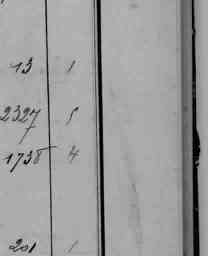 13 1
2327 5
1738 4
201 1